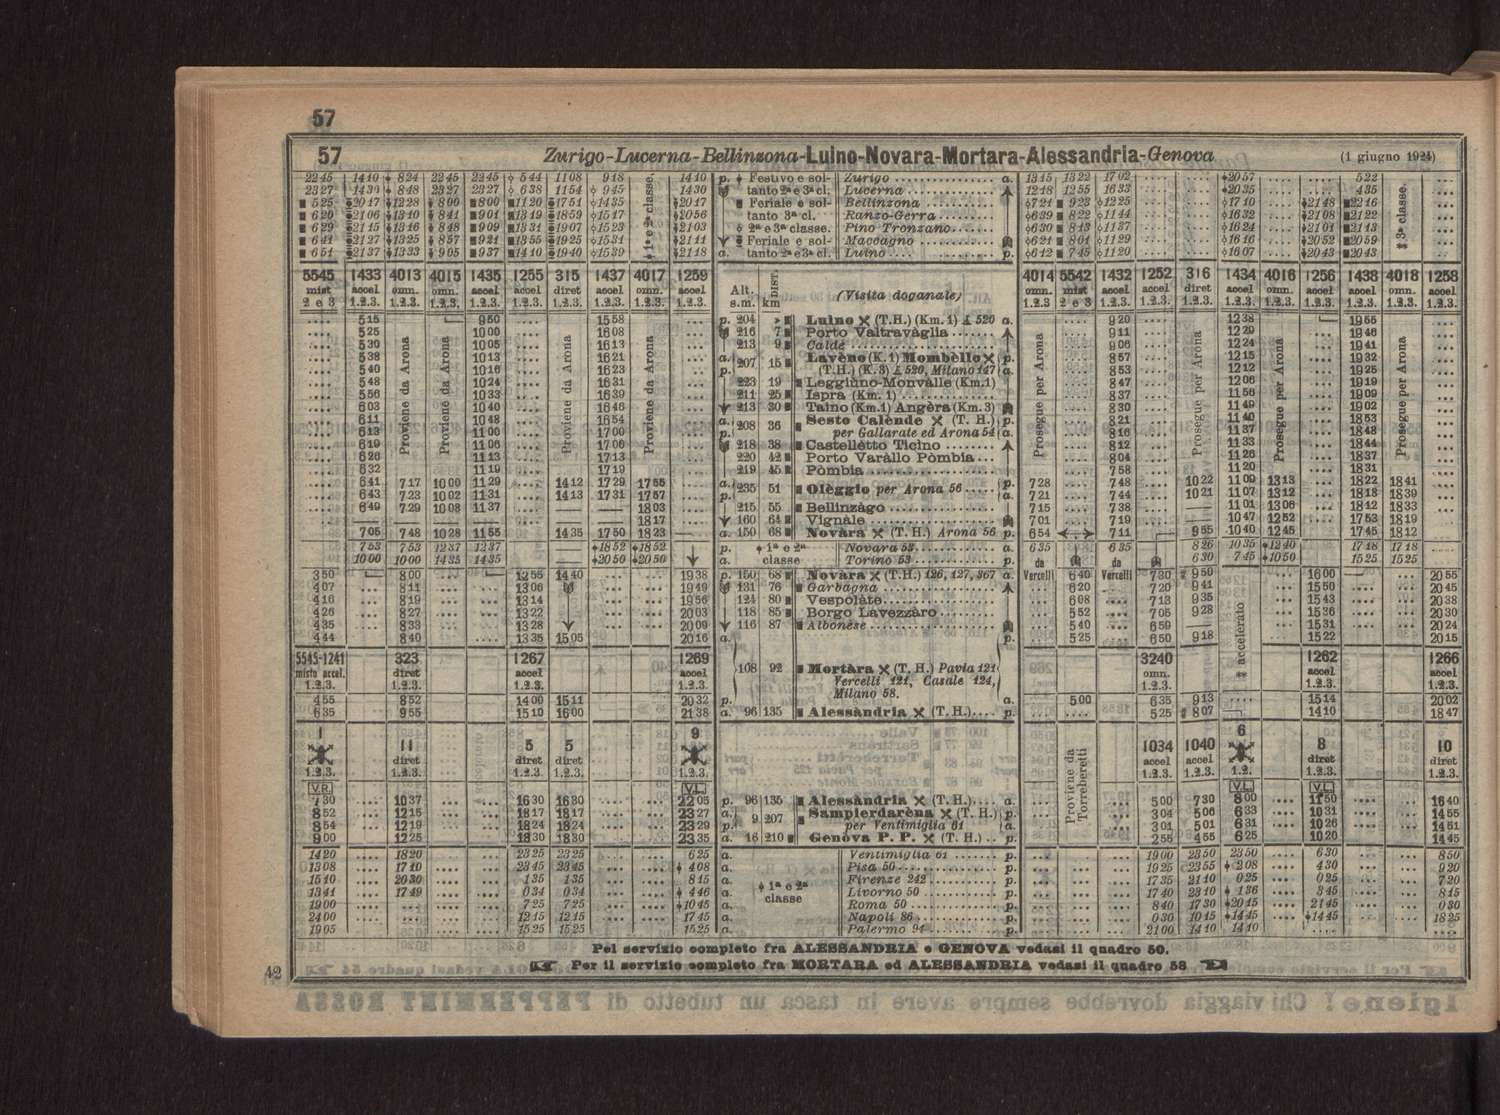 57
57 Zurigo-Lucerna-Bellinzona-Luino-Novara-Mortara-Alessandria-Genova (1 giugno 1924)
2245 1410 824 2245 2245 544 1108 918 1410 p. Festivo e sol- Zurigo a. 1315 1322 1702 2057 522
2327 1430 848 2327 2327 638 1154 945 1430 tanto 2ª e 3ª cl. Lucerna 1218 1255 1633 2035 435
525 2017 1228 800 800 1120 1751 1435 2017 Feriale e sol- Bellinzona 721 923 1225 1710 2148 2216
620 2106 1310 841 901 1319 1859 1517 2056 tanto 3ª cl. Ranzo-Gerra 639 822 1144 1632 2108 2122
629 2115 1316 848 909 1331 1907 1523 2103 2ª e 3ª classe. Pino Tronzano 630 813 1137 1624 2101 2113
641 2127 1325 857 921 1355 1925 1531 2111 Feriale e sol- Maccagno 621 801 1129 1616 2052 2059
651 2137 1333 905 937 1410 1940 1539 2118 a. tanto 2ª e 3ª cl. Luino p. 612 745 1120 1607 2043 2043
1ª e 2ª classe.
3ª classe.
5545 1433 4013 4015 1435 1255 315 1437 4017 1259 4014 5542 1432 1252 316 1434 4016 1256 1438 4018 1258
mist accel omn. omn. accel accel diret accel omn. accel Alt. DIST. (Visita doganale) omn. mist accel accel diret accel omn. accel accel omn. accel
2 e 3 1.2.3. 1.2.3. 1.2.3. 1.2.3. 1.2.3. 1.2.3. 1.2.3. 1.2.3. 1.2.3. s.m. km 1.2.3 2 e 3 1.2.3. 1.2.3. 1.2.3. 1.2.3. 1.2.3. 1.2.3. 1.2.3. 1.2.3. 1.2.3.
515 950 1558 p. 204 » Luino (T.H.) (Km. 1) 520 a. 920 1238 1955
525 1000 1608 216 7 Porto Valtravàglia 911 1229 1946
530 1005 1613 213 9 Caldè 906 1224 1941
538 1013 1621 a. 207 15 Lavèno (K. 1) Mombèllo p. 857 1215 1932
540 1016 1623 p. (T.H.) (K. 3) 520, Milano 147 a. 853 1212 1925
548 1024 1631 223 19 Leggiùno-Monvàlle (Km. 1) 847 1206 1919
556 1033 1639 211 25 Ispra (Km. 1) 837 1156 1909
603 1040 1646 213 30 Taino (Km. 1) Angèra (Km. 3) 830 1149 1902
611 1048 1654 a. 208 36 Sesto Calènde (T. H.) p. 821 1140 1853
613 1100 1700 p. per Gallarate ed Arona 54 a. 816 1137 1848
619 1106 1706 218 38 Castellètto Ticino 812 1133 1844
626 1113 1713 220 42 Porto Varàllo Pòmbia 804 1126 1837
632 1119 1719 219 45 Pòmbia 758 1120 1831
641 717 1000 1129 1412 1729 1755 a. 235 51 Olèggio per Arona 56 p. 728 748 1022 1109 1313 1822 1841
643 723 1002 1131 1413 1731 1757 p. a. 721 744 1021 1107 1312 1818 1839
649 729 1008 1137 1803 215 55 Bellinzàgo 715 738 1101 1306 1812 1833
1817 160 64 Vignàle 701 719 1047 1252 1753 1819
705 748 1028 1155 1435 1750 1823 a. 150 68 Novàra (T. H.) Arona 56 p. 654 711 955 1040 1245 1745 1812
Proviene da Arona
Proviene da Arona
Proviene da Arona
Proviene da Arona
Prosegue per Arona
Prosegue per Arona
Prosegue per Arona
Prosegue per Arona
753 753 1237 1237 1852 1852 p. 1ª e 2ª Novara 53 a. 635 635 826 1035 1240 1748 1718
1000 1000 1435 1435 2050 2050 a. classe Torino 53 p. da da 630 745 1050 1525 1525
350 800 1255 1440 1938 p. 150 68 Novàra (T.H.) 126, 127, 367 a. Vercelli 640 Vercelli 730 950 1600 2055
407 811 1306 1949 131 76 Garbagna 620 720 941 1550 2045
416 819 1314 1956 124 80 Vespolàte 608 713 935 1543 2038
426 827 1322 2003 118 85 Borgo Lavezzàro 552 705 928 1536 2030
435 833 1328 2009 116 87 Albonèse 540 659 1531 2024
444 840 1335 1505 2016 a. p. 525 650 918 1522 2015
5545-1241 323 1267 1269 3240 1262 1266
misto accel. diret accel accel 108 92 Mortàra (T. H.) Pavia 121 omn. accel accel
1.2.3. 1.2.3. 1.2.3. 1.2.3. Vercelli 121, Casale 124, 1.2.3. 1.2.3. 1.2.3.
Milano 58.
accelerato
455 852 1400 1511 2032 p. a. 500 635 913 1514 2002
635 955 1510 1600 2138 a. 96 135 Alessàndria (T. H.) p. 525 807 1410 1847
1 11 5 5 9 1034 1040 6 8 10
diret diret diret accel accel diret diret
1.2.3. 1.2.3. 1.2.3. 1.2.3. 1.2.3. 1.2.3. 1.2.3. 1.2. 1.2.3. 1.2.3.
V.R. V.L. V.L. V.L.
Proviene da Torreberetti
730 1037 1630 1630 2205 p. 96 135 Alessàndria (T. H.) a. 500 730 800 1150 1640
852 1215 1817 1817 2327 a. 9 207 Sampierdarèna (T. H.) p. 304 506 633 1031 1455
854 1219 1824 1824 2329 p. per Ventimiglia 61 a. 301 501 631 1026 1451
900 1225 1830 1830 2335 a. 16 210 Genòva P. P. (T. H.) p. 255 455 625 1020 1445
1420 1820 2325 2325 625 a. Ventimiglia 61 p. 1900 2350 2350 630 850
1308 1710 2345 2345 408 a. Pisa 50 p. 1925 2355 208 430 920
1540 2030 135 135 815 a. 1ª e 2ª Firenze 242 p. 1735 2140 025 025 720
1341 1749 034 034 446 a. classe Livorno 50 p. 1740 2310 136 345 815
1900 725 725 1045 a. Roma 50 p. 840 1730 2045 2145 030
2400 1215 1215 1745 a. Napoli 86 p. 030 1015 1445 1445 1825
1905 1525 1525 1525 a. Palermo 94 p. 2100 1410 1410
Pel servizio completo fra ALESSANDRIA e GENOVA vedasi il quadro 50.
Per il servizio completo fra MORTARA ed ALESSANDRIA vedasi il quadro 58
42